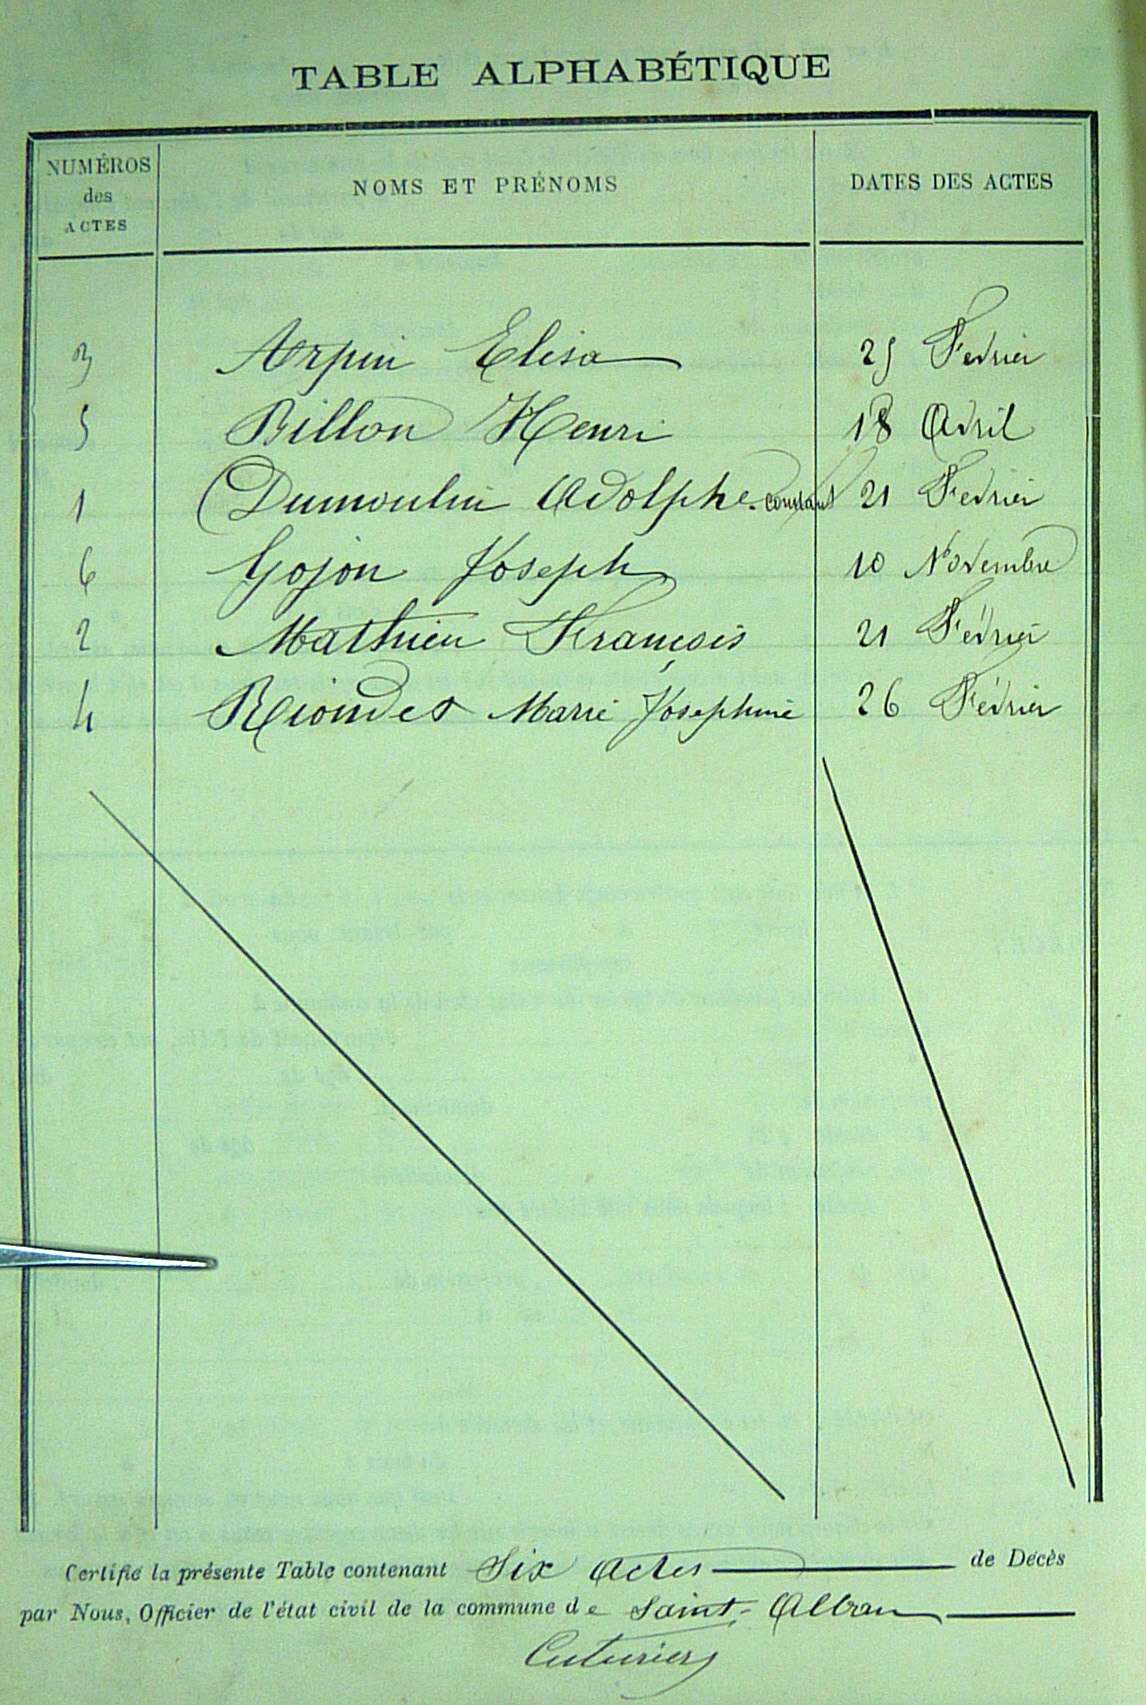 TABLE ALPHABÉTIQUE
NUMÉROS des ACTES NOMS ET PRÉNOMS DATES DES ACTES
3 Arpin Elisa 25 Fevrier
5 Billon Henri 18 Avril
1 Dumoulin Adolphe-constant 21 Fevrier
6 Gojon Joseph 10 Novembre
2 Mathieu François 21 Février
4 Riondet Marie Josephine 26 Février
Certifié la présente Table contenant Six actes de Décès
par Nous, Officier de l'état civil de la commune de Saint-Alban